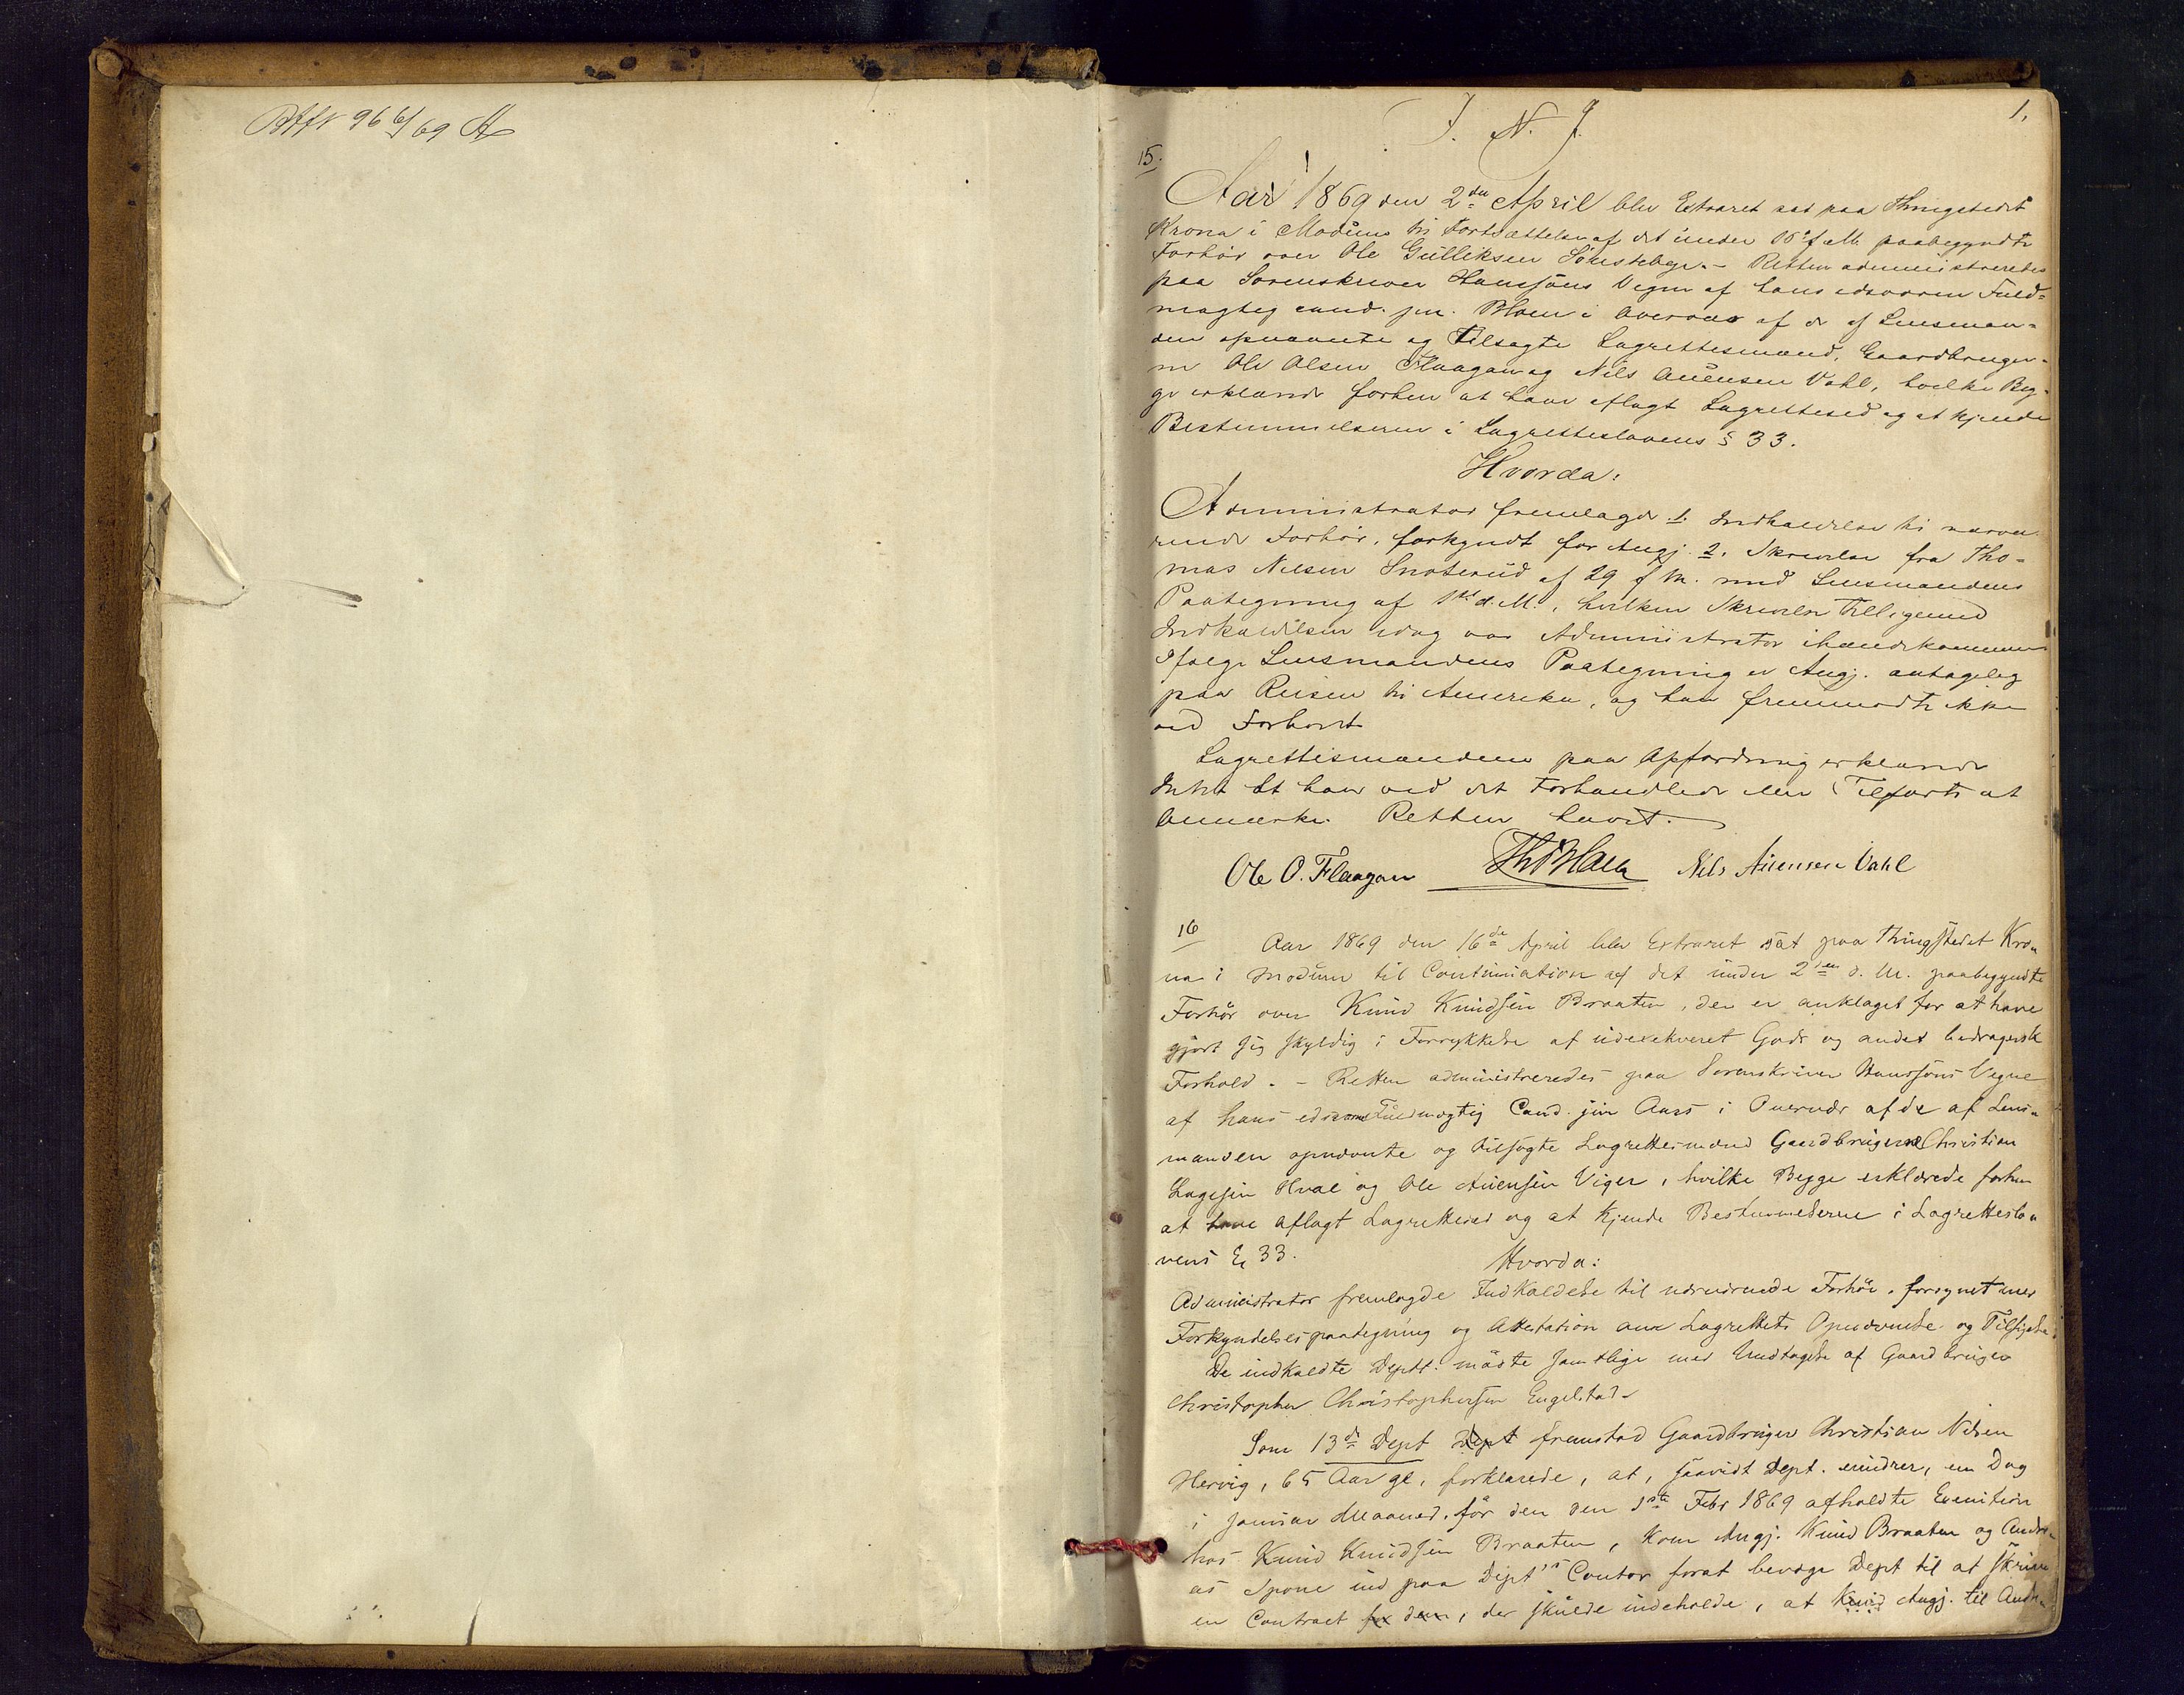 1.
I. N. J.
15.
Aar 1869 den 2den April blev Extraret sat paa Thingstedet
Krona i Modum til Fortsættelse af det under 15 f. M. paabegyndte
Forhör over Ole Gulliksen . – Retten administreredes
paa Sorenskriver Hanssöns Vegne af hans edsvorne Fuld=
mægtig cand. jur. Blom i Overvær af de af Lensman=
den opnævnte og tilsagte Lagrettesmænd, Gaardbruger=
ne Ole Olsen Flaagan og Nils Auensen Vahl, hvilke Beg=
ge erklærede forhen at have aflagt Lagrettesed og at kjende
Bestemmelserne i Lagretteslovens § 33.
Hvorda:
Administrator fremlagde 1. Indkaldelse til nærvæ
rende Forhör, forkyndt for Angj. 2. Skrivelse fra Tho=
mas Nilsen Snoterud af 29 f. M. med Lensmandens
Paategning af 1ste d. M., hvilken Skrivelse tilligemed
Indkaldelsen idag var Administrator ihændekommen
Ifølge Lensmandens Paategning er Angj. antagelig
paa Reisen til Amerika, og han fremmødte ikke
ved Forhøret
Lagrettesmændene paa Opfordring erklærede
Intet at have ved det Forhandlede eller Tilførte at
bemærke. Retten hævet.
Ole O. Flaagan Th Blom Nils Auensen Vahl
16
Aar 1869 den 16de April blev Extraret sat paa Thingstedet Kro=
na i Modum til Continuation af det under 2den d. M. paabegyndte
Forhör over Knud Knudsen Braaten, der er anklaget for at have
gjort sig skyldig i Forrykkelse af udexekveret Gods og andet bedragersk
Forhold. – Retten administreredes paa Sorenskriver Hanssöns Vegne
af hans edsvorne Fuldmægtig Cand. jur Aass i Overvær af de af Lens=
manden opnævnte og tilsagte Lagrettesmænd Gaardbrugerne Christian
Lagesen Hval og Ole Auensen Viger, hvilke Begge erklærede forhen
at have aflagt Lagrettesed og at kjende Bestemmelserne i Lagretteslo=
vens § 33. Hvorda:
Administrator fremlagde Indkaldelse til nærværende Forhör, forsynet med
Forkyndelsespaategning og Attestation om Lagrettets Opnævnelse og Tilsigelse
De indkaldte Deptt. mödte samtlige med Undtagelse af Gaardbruger
Christopher Christophersen Engelstad.
Som 13de Dept Dept fremstod Gaardbruger Christian Nilsen
Hervig, 65 Aar gl. forklarede, at, saavidt Dept. erindrer, en Dag
i Januar Maaned, för den den 1ste Febr 1869 afholdte Exeuition
hos Knud Knudsen Braaten, kom Angj. Knud Braaten og Andre=
as Spone ind paa Dept's Contor forat bevæge Dept til at skrive
en Contract for dem, der skulde indeholde, at Knud Angj. til Andre=